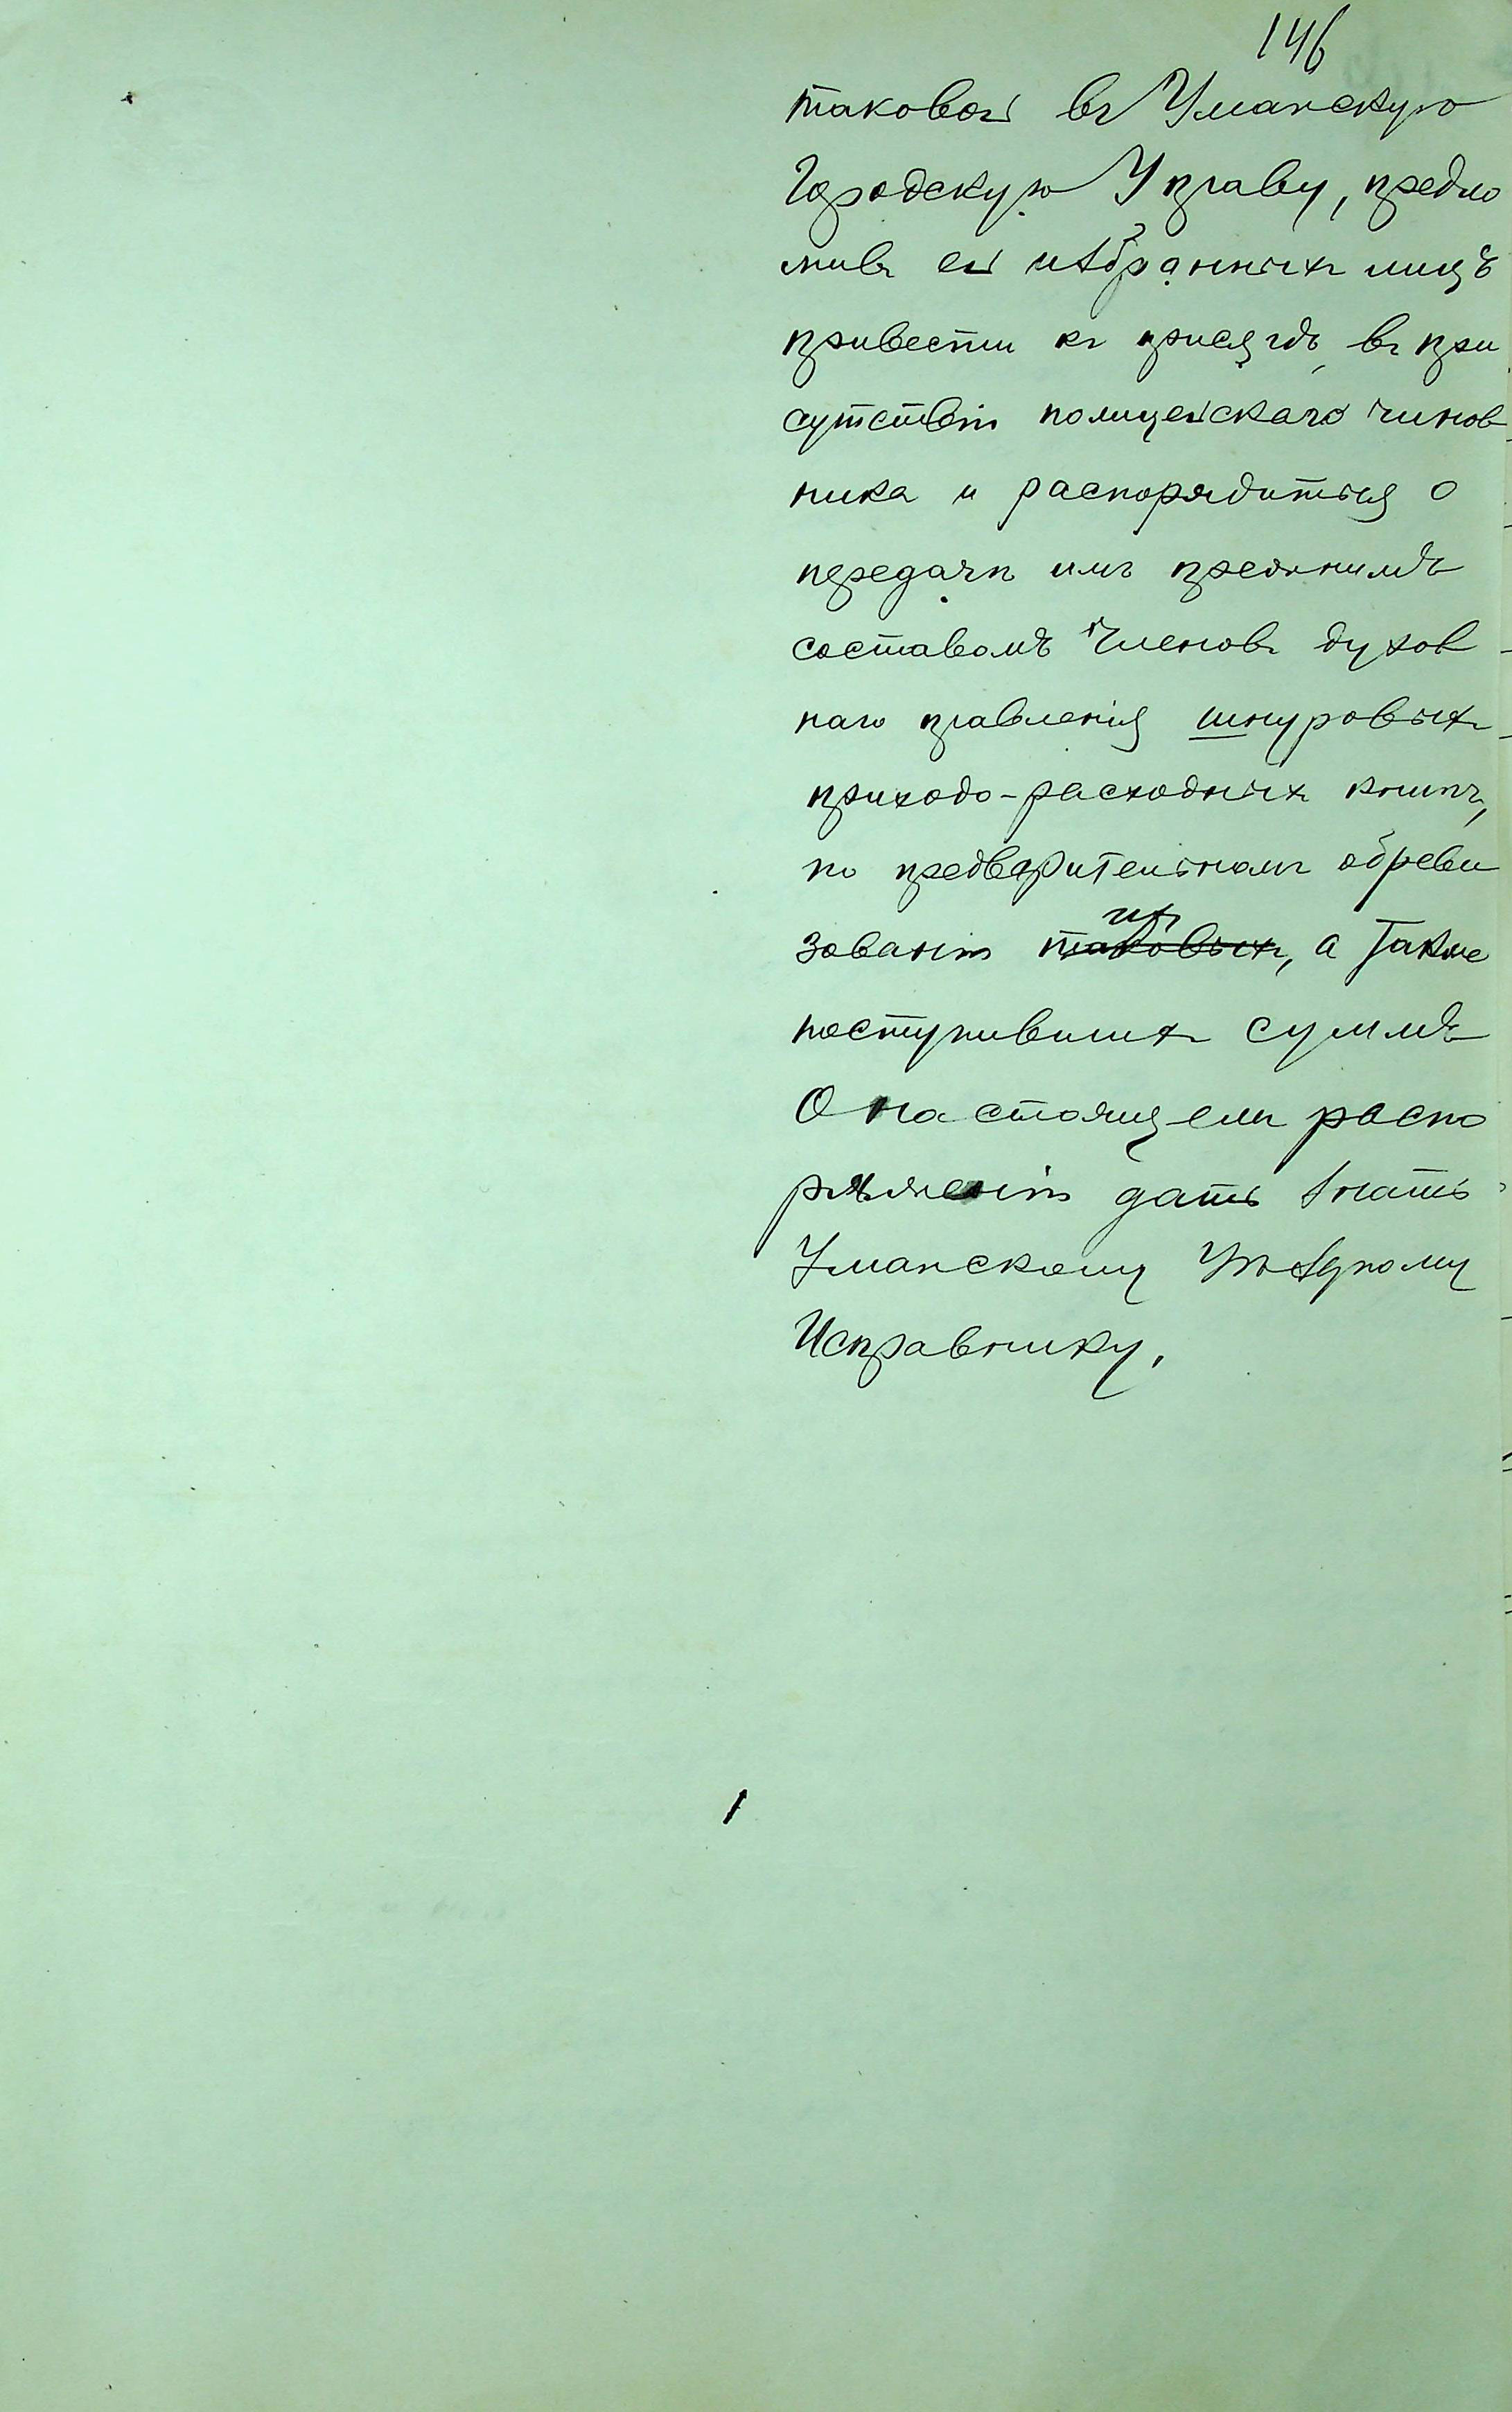 146
таковой въ Уманскую
Городскую Управу, предло
живъ ей избранныхъ лицъ
привести къ присягѣ, въ при
сутствіи полицейскаго чинов
ника и распорядиться о
передачѣ имъ прежнимъ
составомъ членовъ духов-
наго правленія шнуровыхъ
приходо-расходныхъ книгъ,
по предварительномъ обреви
зованіи таковыхъ ихъ, а также
поступившихъ суммъ
О настоящемъ распо
ряженіи дать знать
Уманскому Уѣздному
Исправнику.